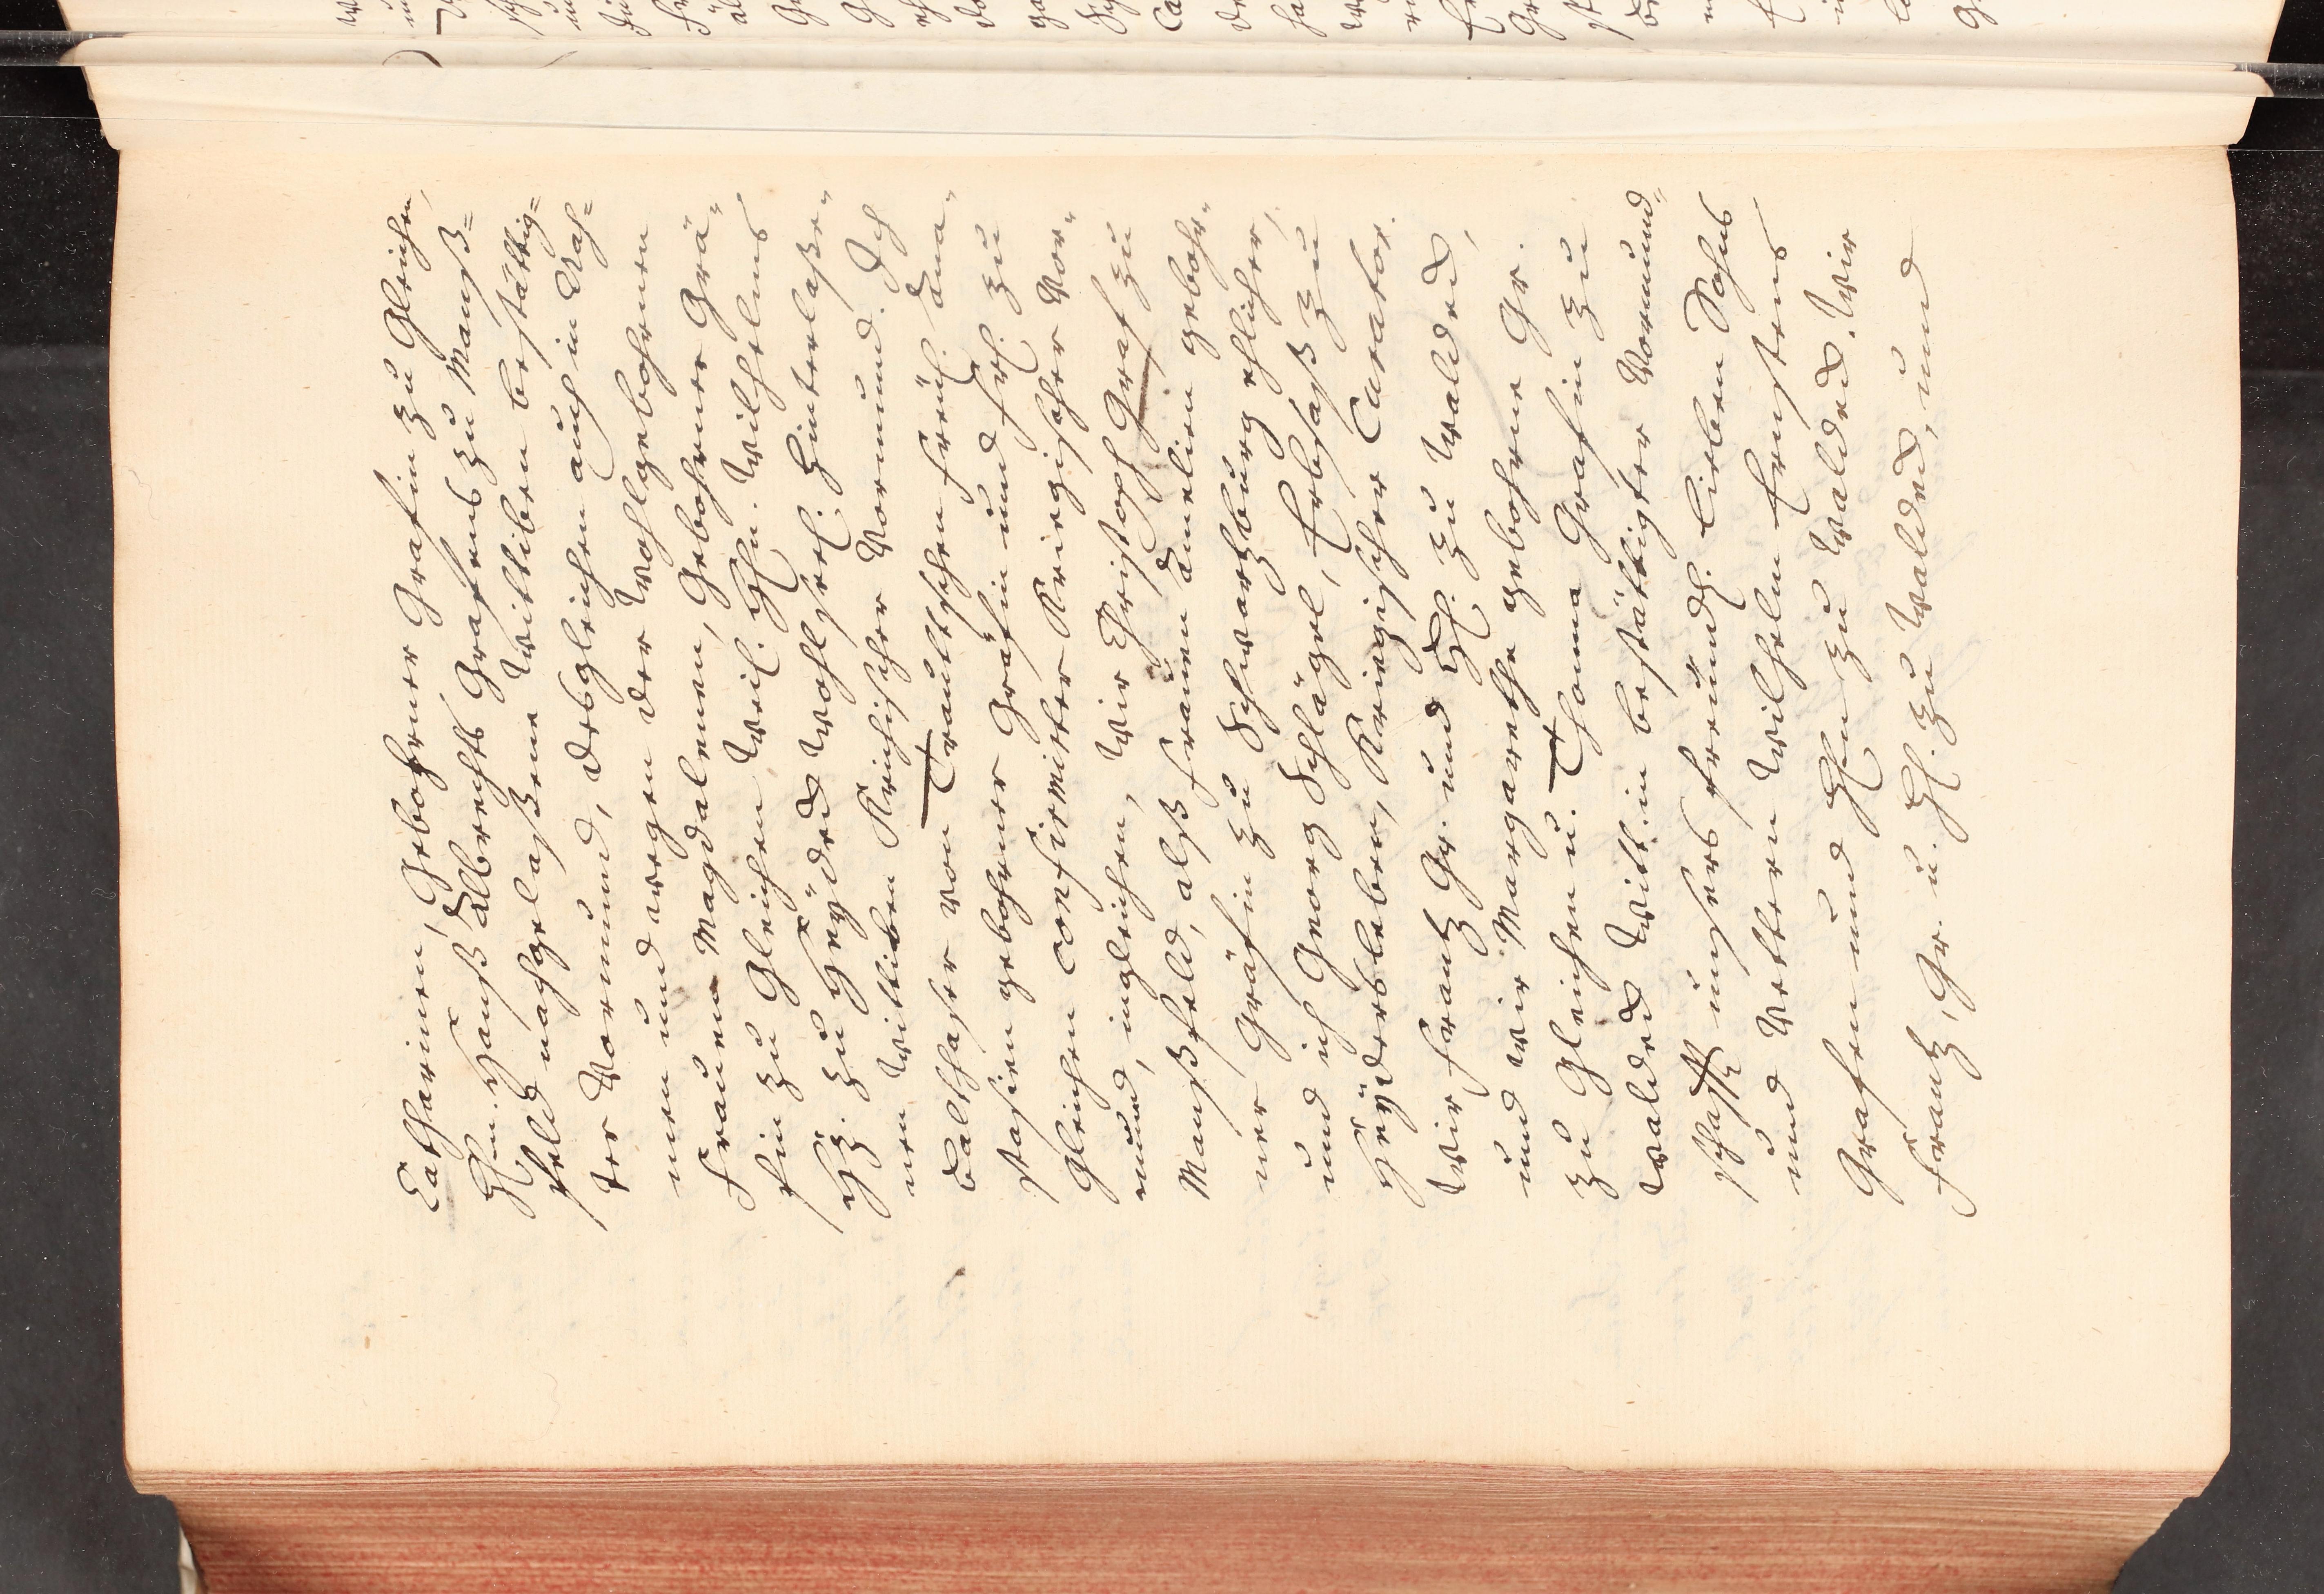 Catharinen, Gebohrner Grafin zu Gleichen,
Hhn. Hanß Albrechts Grafens zu Manß=
feld nachgelaßene Wittiben bestättig=
ter Vormund, desgleichen auch in Nah=
men und wegen der Wohlgebohrnen
Frauen Magdalenen, Gebohrner Grä=
fin zu Gleichen, Weil. Hhn. Wilhelms
Hz. zu Heÿdeck Wohlseel. Hinterlaße=
nen Wittiben Krichischer Vormund. Ich
Balthaser von Trautschen Freül. Ana=
stasien gebohrner Gräfin und Frl. zu
Gleichen confirmirter Kriegischer Vor=
mund, ingleichen, Wir Christoph Graf zu
Manßfeld, alß Frauen Amelien gebohr=
ner Gräfin zu Schwarzburg ehlicher,
und ich Georg Schlägel, Erbsaß zu
Heÿdersleben, Kriegischer Curator.
Wir Frantz Gr. und Hl. zu Waldeck,
und Wir Margarethe gebohrne Gr.
zu Gleichen u. Thonna Grafin zu
Waldeck Witt. in bestättigter Vormund=
schafft unsers freundl. lieben Sohns
und Vettern Wilhelm Ernstens
Grafen und Hhn zu Waldeck. Wir
Frantz, Gr. u. Hl. zu Waldeck, und